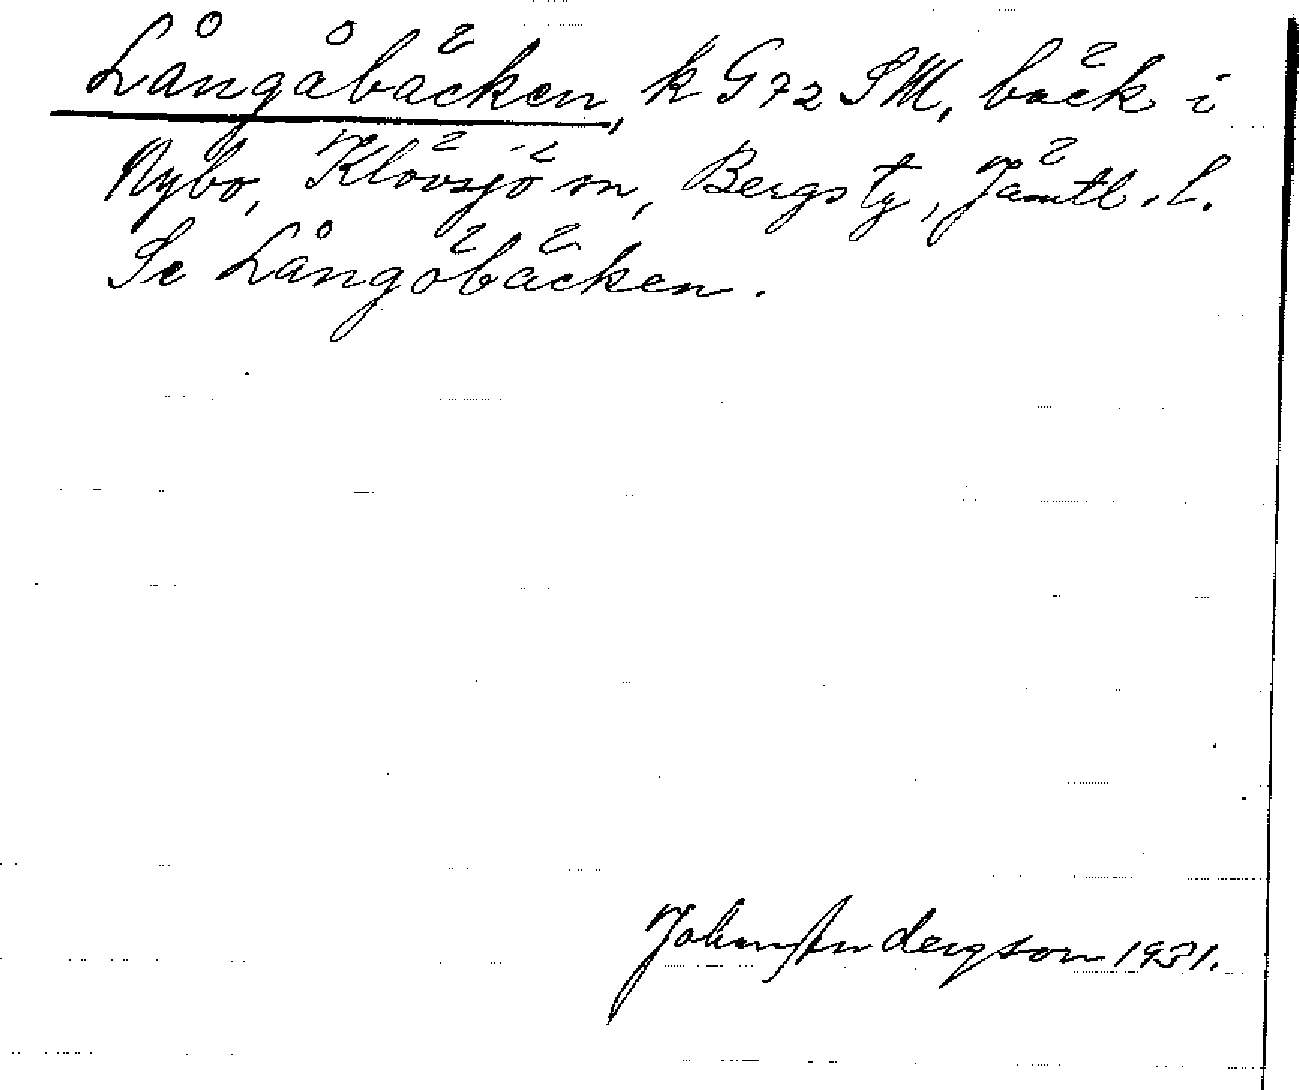 Långåbäcken, k G72 SM, bäck i
Nybo, Klövsjö sn, Bergs tg, Jämtl. l.
Se Långöbäcken.
Johan Andersson 1931.